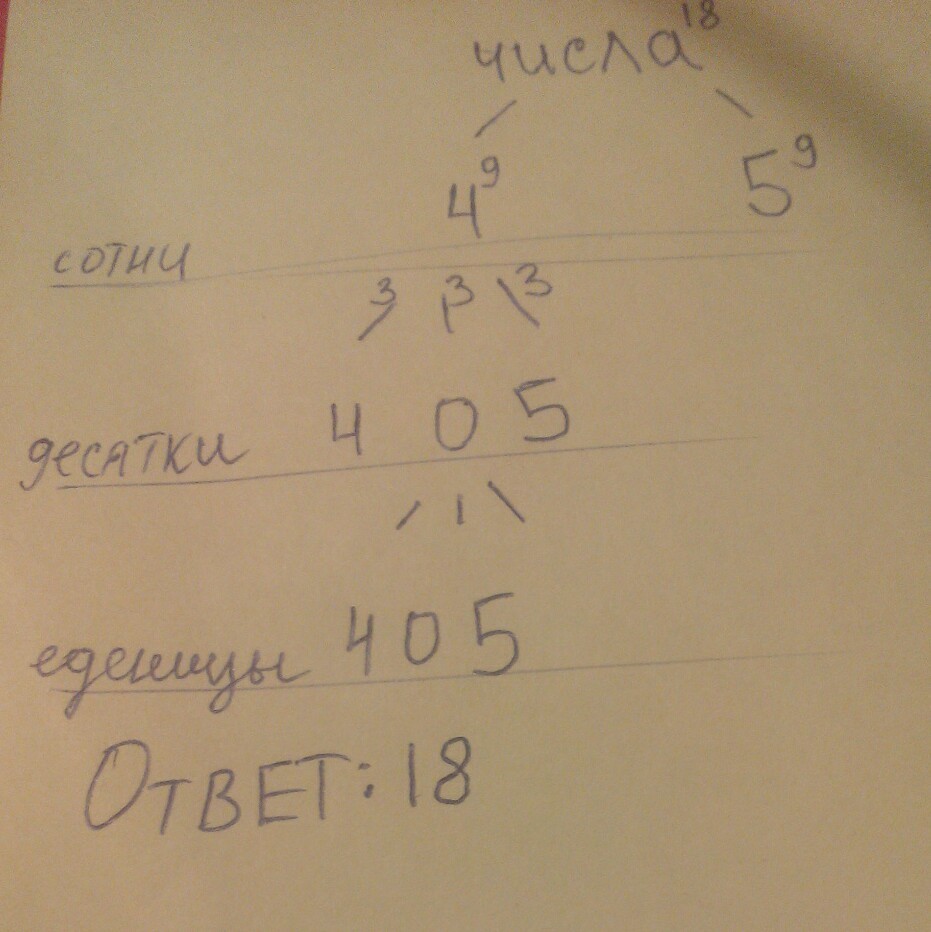 числа 18
4 9 5 9
сотни
3 3 3
десятки 4 0 5
еденицы 4 0 5
Ответ: 18